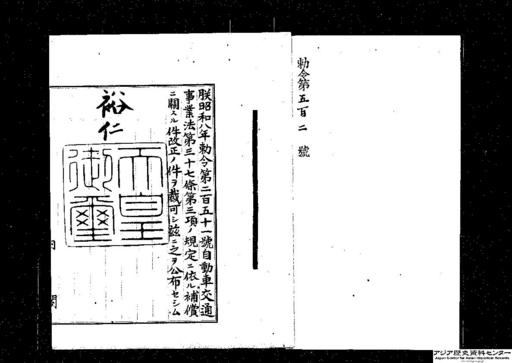 勅令第五百二號
朕昭和八年勅令第二百五十一號自動車交通
事業法第三十七條第三項ノ規定ニ依ル補償
ニ關スル件改正ノ件ヲ裁可シ茲ニ之ヲ公布セシム
裕仁
天皇
御璽
内閣
アジア歴史資料センター
Japan Center for Asian Historical Records